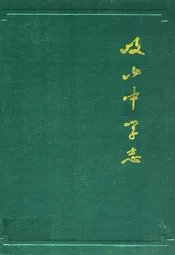 岐山中学志